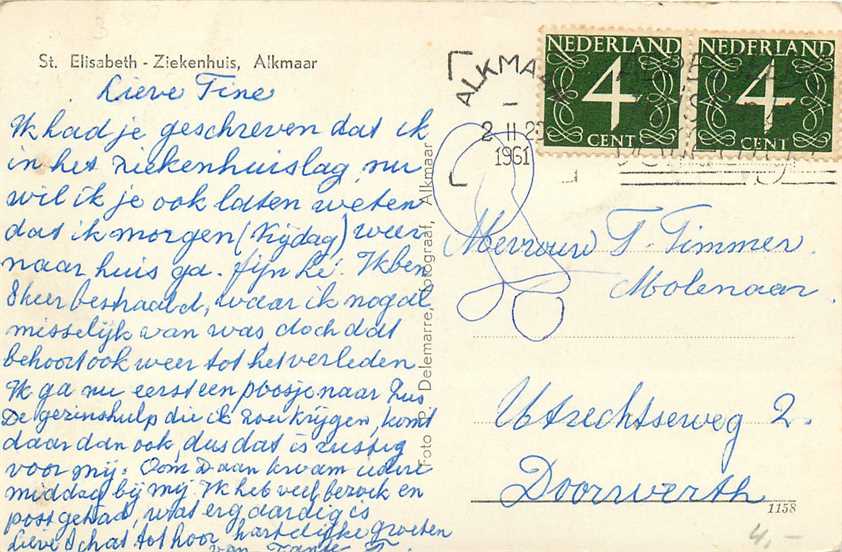 St. Elisabeth - Ziekenhuis, Alkmaar
Lieve Tine
Ik had je geschreven dat ik
in het ziekenhuis lag, nu
wil ik je ook laten weten
dat ik morgen (Vrijdag) weer
naar huis ga. fijn hé! Ik ben
8 keer bestraald, waar ik nogal
misselijk van was, doch dat
behoort ook weer tot het verleden.
Ik ga nu eerst een poosje naar
De gezinshulp die ik zou krijgen, komt
daar dan ook, dus dat is rustig
voor mij. Oom Daan kwam iedere
middag bij mij. Ik heb veel bezoek en
post gehad, wat erg aardig is
Lieve schat tot hoor hartelijke groeten
van Tante T.
Foto P. Delemarre, fotograaf, Alkmaar
ALKMAAR
2 II
1961
NEDERLAND
4
CENT
NEDERLAND
4
CENT
Mevrouw T. Timmer
Molenaar.
Utrechtseweg 2.
Doorwerth
1158
4,-